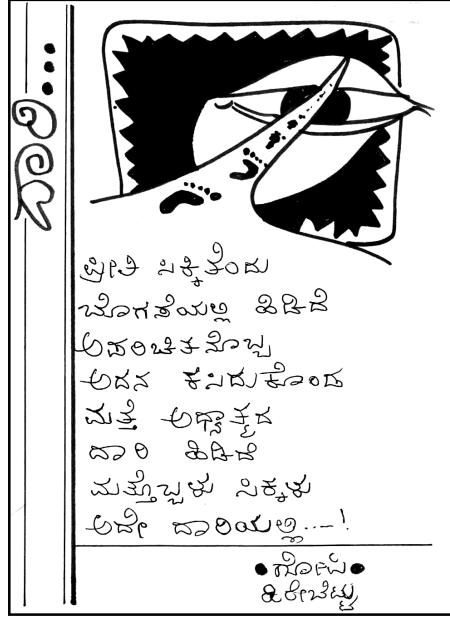 ಪ್ರೀತಿ ಸಿಕ್ಕಿತೆಂದು
ಬೊಗಸೆಯಲ್ಲಿ ಹಿಡಿದೆ
ಅಪರಿಚಿತನೊಬ್ಬ
ಅದನ ಕಸಿದುಕೊಂಡ
ಮತ್ತೆ ಅಧ್ಯಾತ್ಮದ
ದಾರಿ ಹಿಡಿದೆ
ಮತ್ತೊಬ್ಬಳು ಸಿಕ್ಕಳು
ಅದೇ ದಾರಿಯಲ್ಲಿ....!
•ಗೋಪಿ•
ಹಿರೇಬೆಟ್ಟು